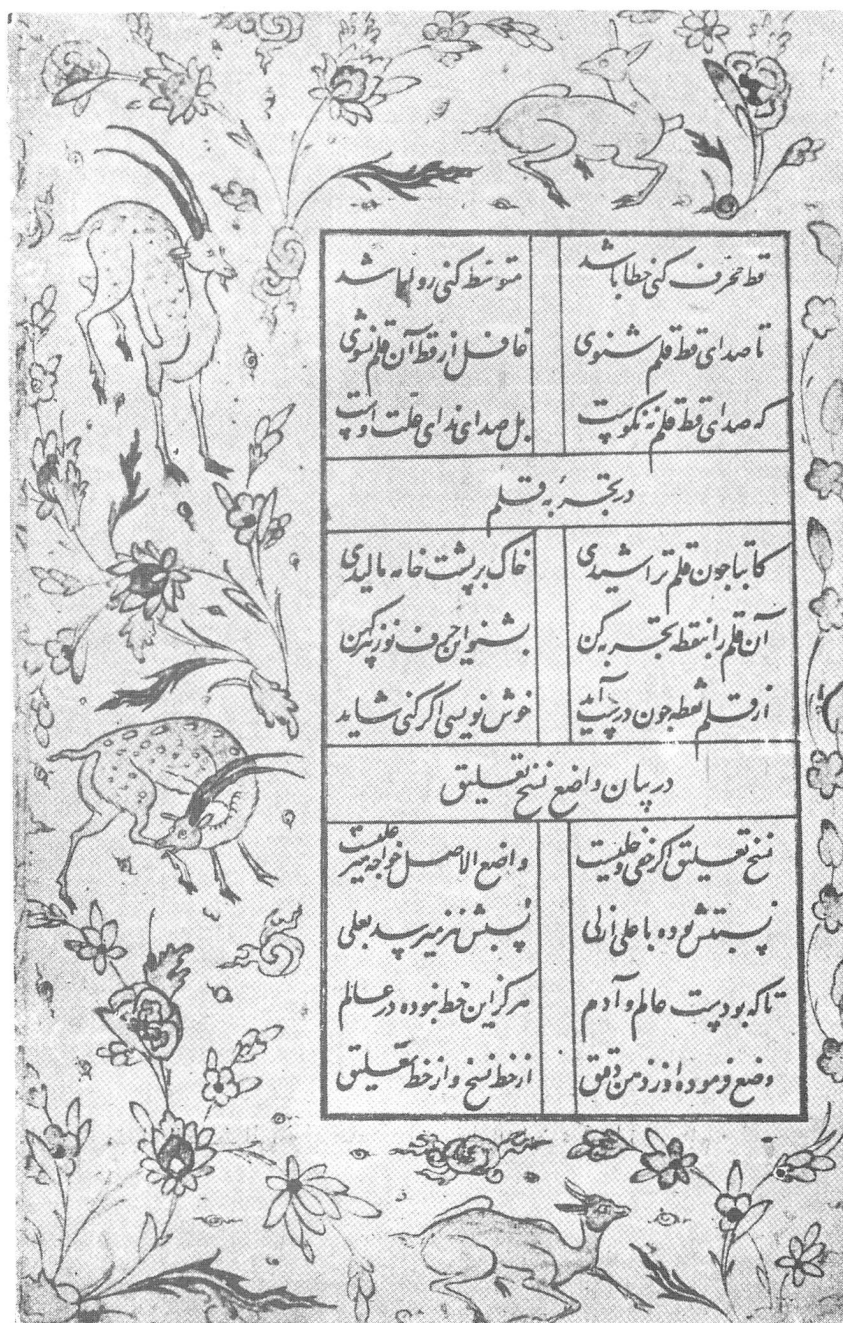 قط محرف کنی خطا باشد متوسط کنی روا باشد
تا صدای قط قلم شنوی غافل از قط آن قلم نشوی
که صدای قط قلم نه نکوست بل صدای ندای علت اوست
در تجربهٔ قلم
کاتبا چون قلم تراشیدی خاک بر پشت خامه مالیدی
آن قلم را بنقطه تجربه کن بشنو این حرف نو ز پیر کهن
از قلم نقطه چون درست آید خوش نویسی اکر کنی شاید
در بیان واضع نسخ تعلیق
نسخ تعلیق اکر خفی و جلیست واضع الاصل خواجه میر علیست
نسبتش بوده با علی ازلی نسبش نیز میرسد بعلی
تا که بودست عالم و آدم هرکز این خط نبوده در عالم
وضع فرمود او ز ذهن دقیق از خط نسخ و از خط تعلیق